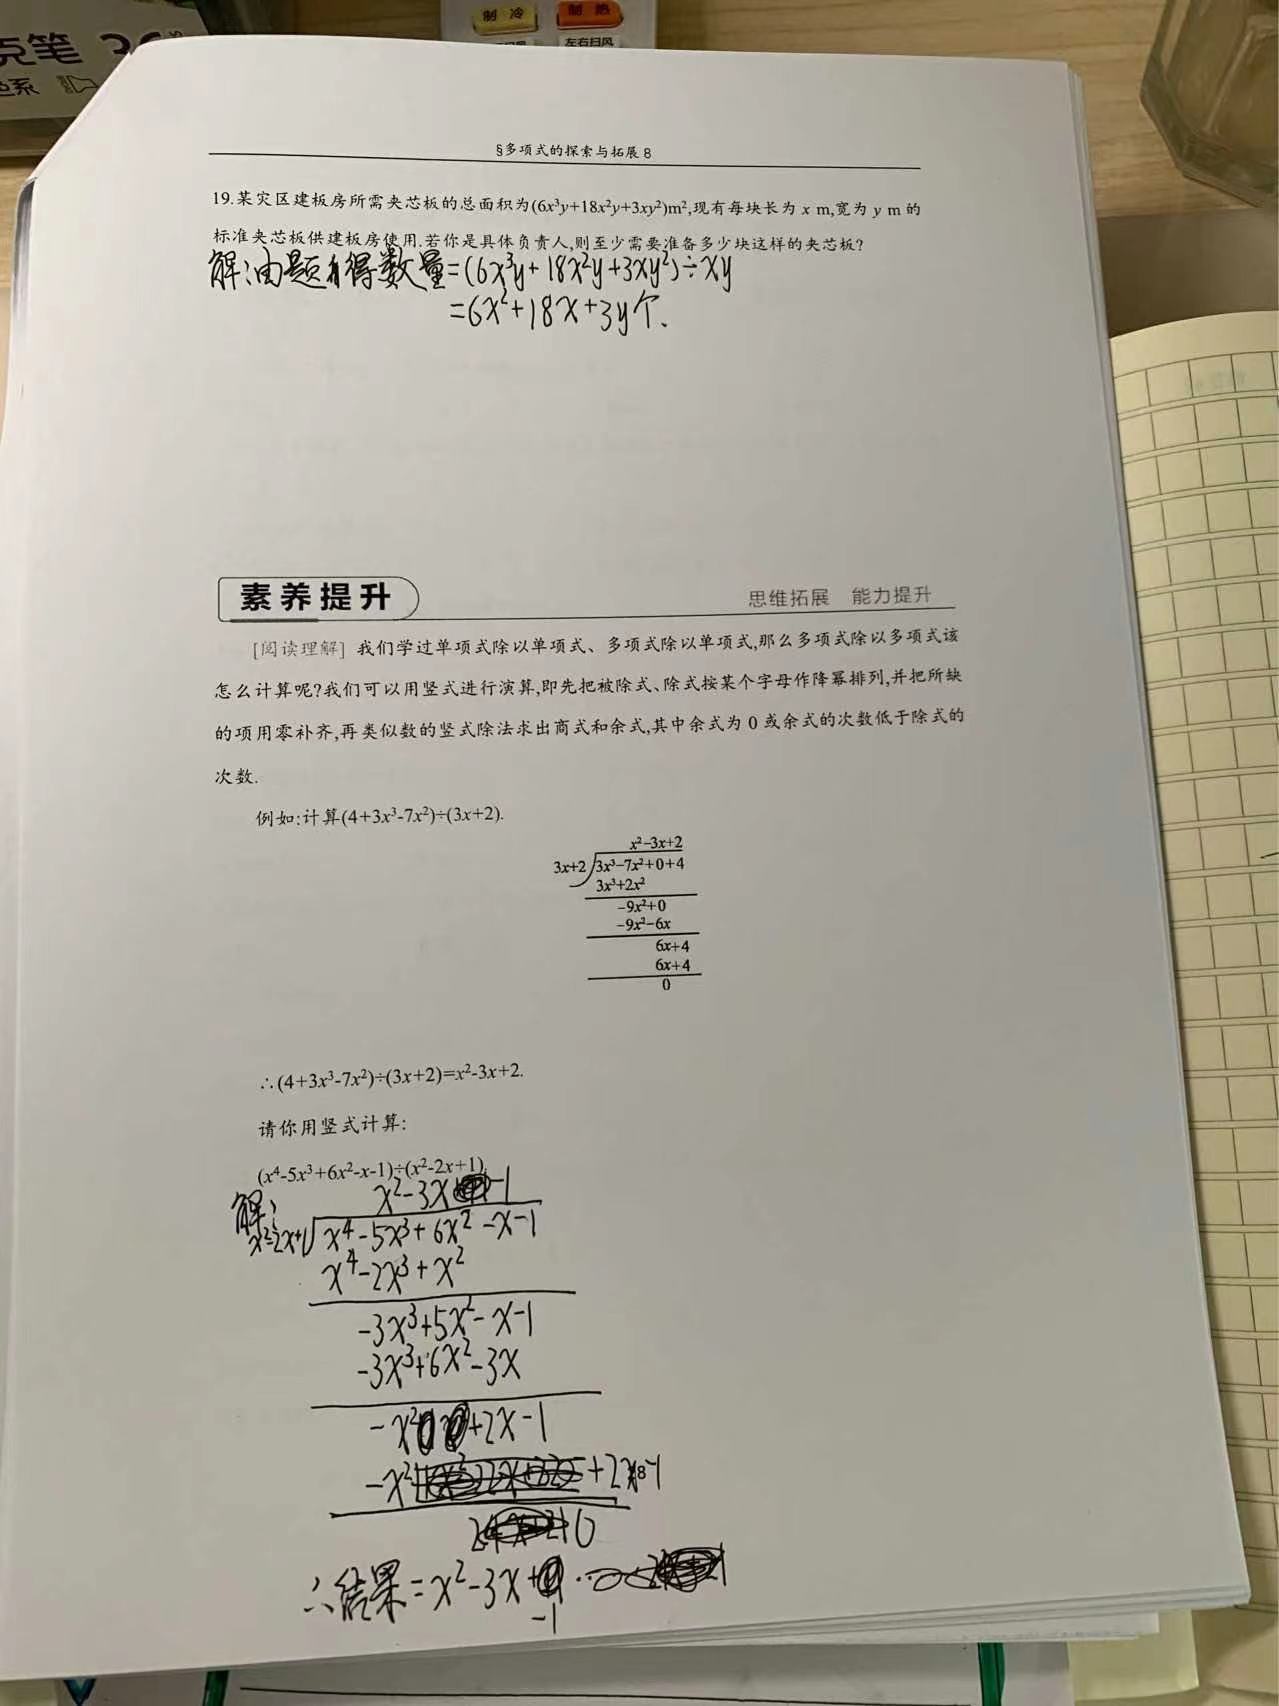 制冷 制热
左右扫风
克笔 36
色系
§多项式的探索与拓展 8
19.某灾区建板房所需夹芯板的总面积为(6x³y+18x²y+3xy²)m²,现有每块长为 x m,宽为 y m 的
标准夹芯板供建板房使用.若你是具体负责人,则至少需要准备多少块这样的夹芯板?
解:由题可得数量=(6x³y+18x²y+3xy²)÷xy
=6x²+18x+3y个.
素养提升
思维拓展 能力提升
[阅读理解] 我们学过单项式除以单项式、多项式除以单项式,那么多项式除以多项式该
怎么计算呢?我们可以用竖式进行演算,即先把被除式、除式按某个字母作降幂排列,并把所缺
的项用零补齐,再类似数的竖式除法求出商式和余式,其中余式为 0 或余式的次数低于除式的
次数.
例如:计算(4+3x³-7x²)÷(3x+2).
x²-3x+2
3x+2 3x³-7x²+0+4
3x³+2x²
-9x²+0
-9x²-6x
6x+4
6x+4
0
∴(4+3x³-7x²)÷(3x+2)=x²-3x+2.
请你用竖式计算:
(x⁴-5x³+6x²-x-1)÷(x²-2x+1).
解:
x²-3x-1
x²-2x+1 x⁴-5x³+6x²-x-1
x⁴-2x³+x²
-3x³+5x²-x-1
-3x³+6x²-3x
-x²+2x-1
-x²+2x-1
8
0
∴结果=x²-3x
-1